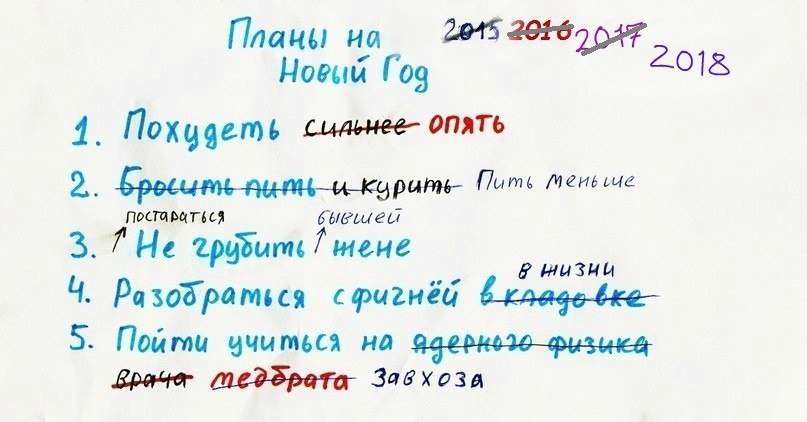 Планы на 2015 2016 2017 2018
Новый Год
1. Похудеть сильнее опять
2. Бросить пить и курить Пить меньше
постараться бывшей
3. Не грубить жене
в жизни
4. Разобраться с фигнёй в кладовке
5. Пойти учиться на ядерного физика
врача медбрата завхоза